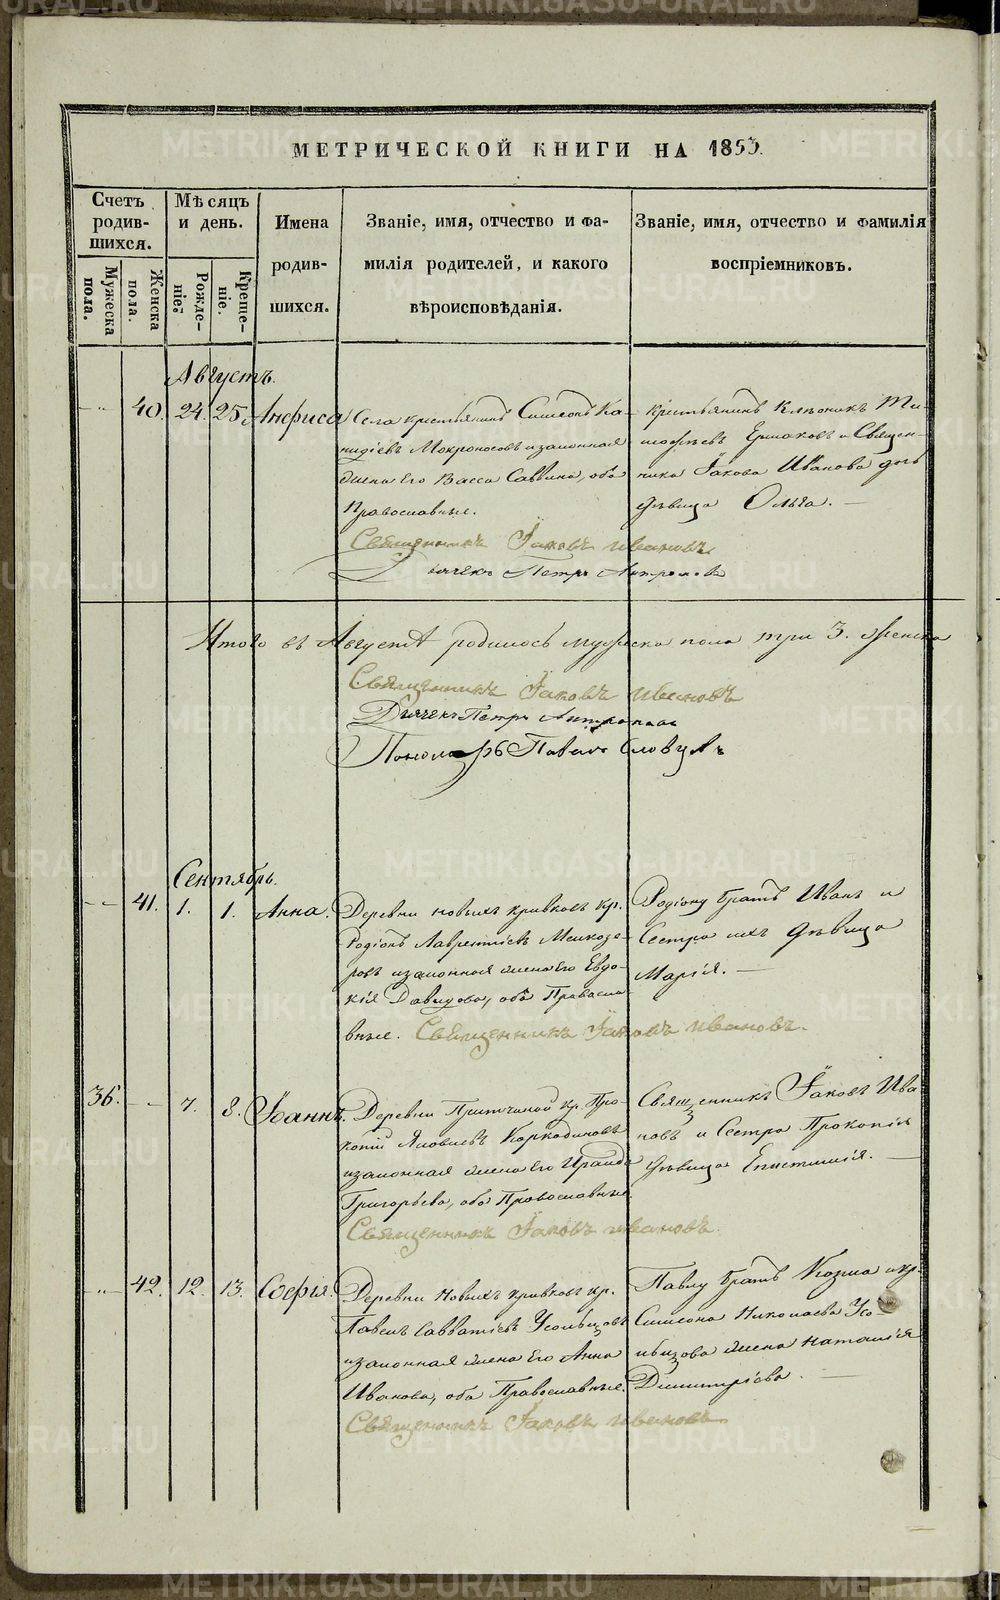 МЕТРИЧЕСКОЙ КНИГИ НА 1853.
Счетъ родив-шихся.
Мужеска пола.
Женска пола.
Мѣсяцъ и день.
Рожде-ніе.
Креще-ніе.
Имена родив-шихся.
Званіе, имя, отчество и фа-
милія родителей, и какого
вѣроисповѣданія.
Званіе, имя, отчество и фамилія
воспріемниковъ.
Августъ.
40. 24. 25. Анфиса
Села крестьянинъ Симеонъ Ка-
Мокроносовъ и законная
жена его Васса Саввина, оба
Православные.
Крестьянинъ Ти-
мофѣевъ Ермаковъ и Священ-
ника Іакова Иванова дочь
дѣвица Ольга.
Священникъ Іаковъ Ивановъ
Дьячекъ Петръ
Итого въ Августѣ родилось мужеска пола три 3. женска
Священникъ Іаковъ Ивановъ
Дьячекъ Петръ
Пономарь Павелъ Словцовъ
Сентябрь.
41. 1. 1. Анна.
Деревни Новыхъ Кривковъ кр.
Родіонъ Лаврентіевъ Мелкозе-
ровъ и законная жена его Евдо-
кія Давидова, оба Правосла-
вные. Священникъ Іаковъ Ивановъ.
Родіону братъ Иванъ и
Сестра ихъ дѣвица
Марія.
36. 7. 8. Іоаннъ.
Деревни Притчиной кр. Про-
копій Яковлевъ Коркодиновъ
и законная жена его Ираида
Григорьева, оба Православные.
Священникъ Іаковъ Ива-
новъ и Сестра Прокопія
дѣвица Епистимія.
Священникъ Іаковъ Ивановъ.
42. 12. 13. Софія.
Деревни Новыхъ Кривковъ кр.
Павелъ Савватіевъ Усольцовъ
и законная жена его Анна
Иванова, оба Православные.
Павлу братъ Козма и кр.
Симеона Николаева
жена Наталія
Димитріева.
Священникъ Іаковъ Ивановъ.
METRIKI.GASO-URAL.RU